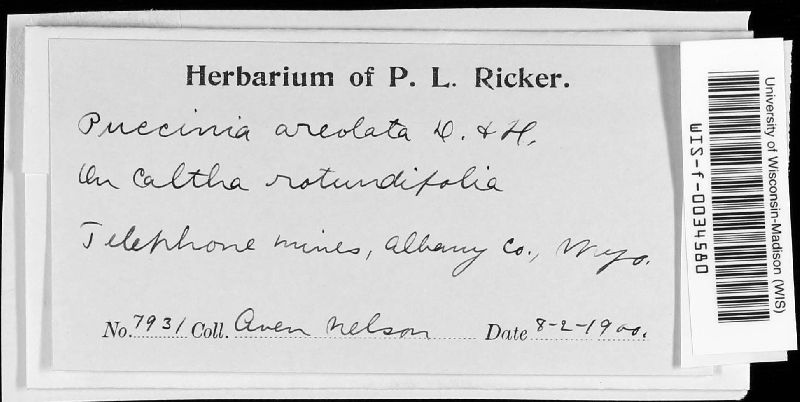 Herbarium of P. L. Ricker.
Puccinia areolata D. & H.
On Caltha rotundifolia
Telephone mines, Albany Co., Wyo.
No. 7931 Coll. Aven Nelson Date 8-2-1900.
University of Wisconsin-Madison (WIS)
WIS-f-0034580